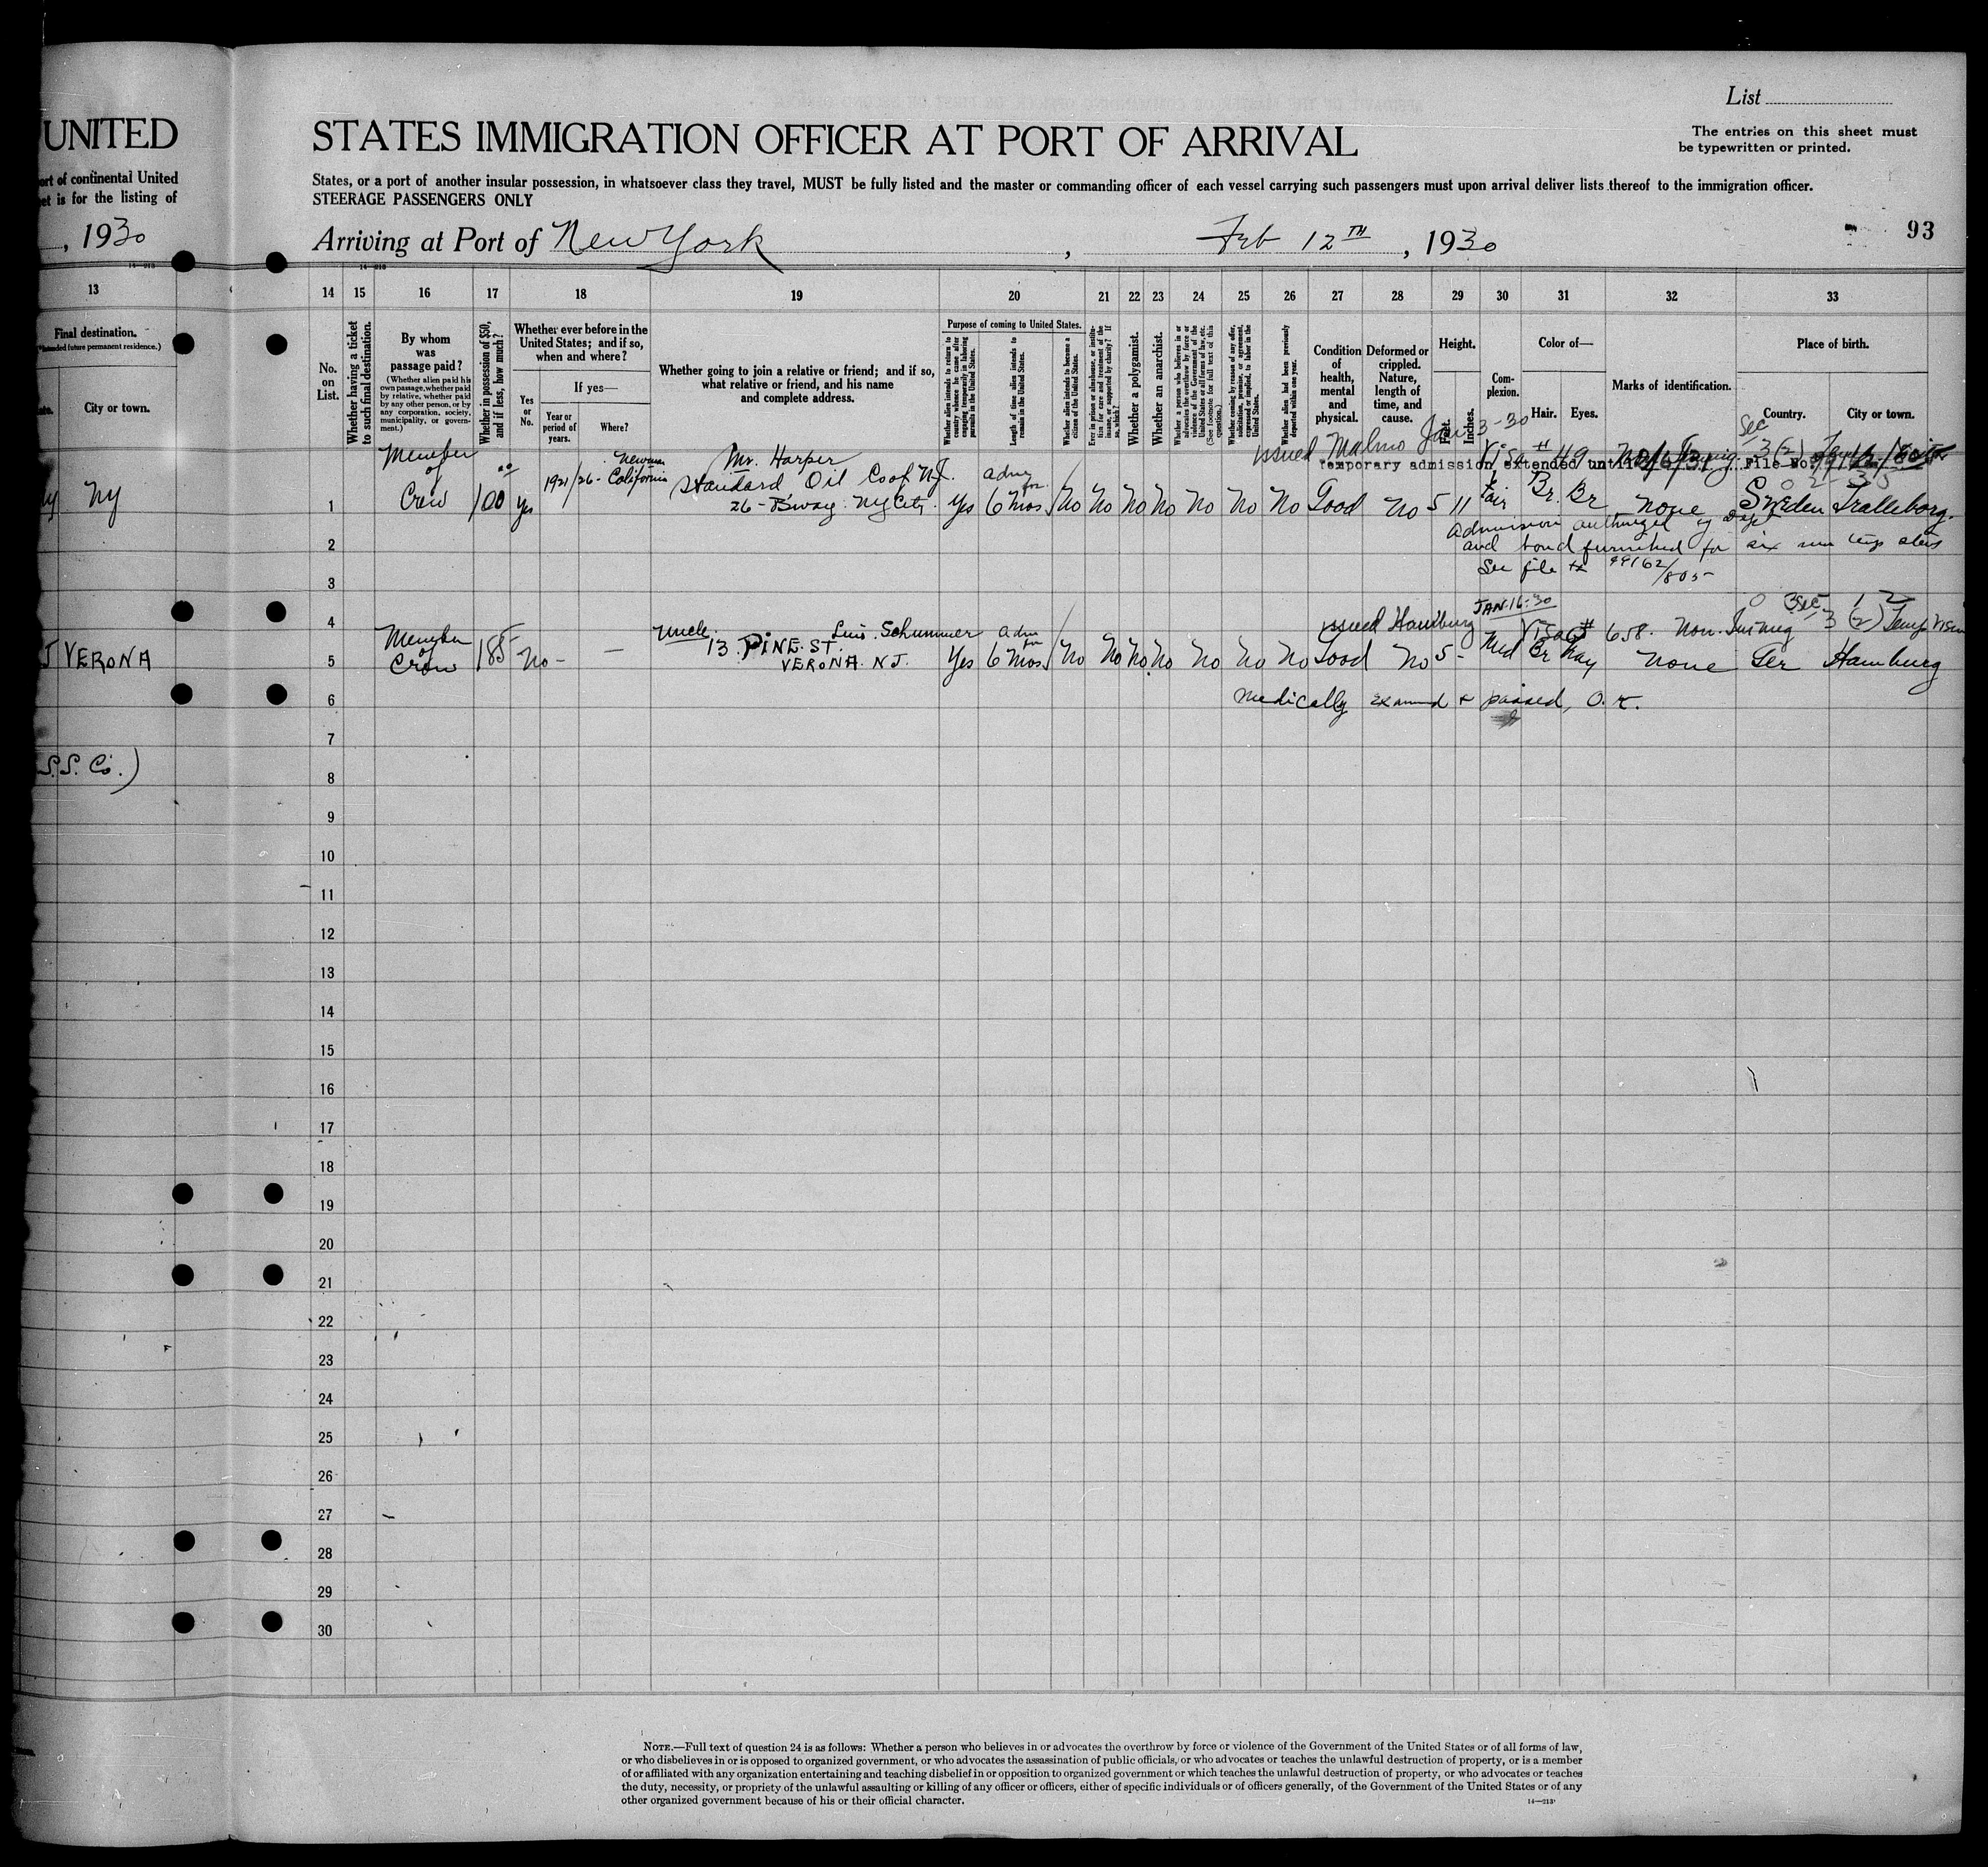 List
UNITED STATES IMMIGRATION OFFICER AT PORT OF ARRIVAL
The entries on this sheet must
be typewritten or printed.
ort of continental United States, or a port of another insular possession, in whatsoever class they travel, MUST be fully listed and the master or commanding officer of each vessel carrying such passengers must upon arrival deliver lists thereof to the immigration officer.
et is for the listing of STEERAGE PASSENGERS ONLY
, 1930
Arriving at Port of New York, Feb 12TH, 1930
93
14—213
14—213
13 14 15 16 17 18 19 20 21 22 23 24 25 26 27 28 29 30 31 32 33
Final destination.
(Intended future permanent residence.)
City or town.
No. on List.
Whether having a ticket to such final destination.
By whom was passage paid?
(Whether alien paid his own passage, whether paid by relative, whether paid by any other person, or by any corporation, society, municipality, or government.)
Whether in possession of $50, and if less, how much?
Whether ever before in the United States; and if so, when and where?
Yes or No.
If yes—
Year or period of years.
Where?
Whether going to join a relative or friend; and if so, what relative or friend, and his name and complete address.
Purpose of coming to United States.
Whether alien intends to return to country whence he came after engaging temporarily in laboring pursuits in the United States.
Length of time alien intends to remain in the United States.
Whether alien intends to become a citizen of the United States.
Ever in prison or almshouse, or institution for care and treatment of the insane, or supported by charity? If so, which?
Whether a polygamist.
Whether an anarchist.
Whether a person who believes in or advocates the overthrow by force or violence of the Government of the United States or all forms of law, etc. (See footnote for full text of this question.)
Whether coming by reason of any offer, solicitation, promise, or agreement, expressed or implied, to labor in the United States.
Whether alien had been previously deported within one year.
Condition of health, mental and physical.
Deformed or crippled. Nature, length of time, and cause.
Height.
Feet.
Inches.
Complexion.
Color of—
Hair.
Eyes.
Marks of identification.
Place of birth.
Country.
City or town.
issued Malmo Jan 3-30 Visa # 49 Sec 3(2)
Temporary admission extended until 2/6/31. File No.
NY 1 Member of Crew 100 00 Yes 1921/26 - Newman California Mr. Harper
Standard Oil Co of N.J.
26 - B'way. NY City. Yes adm for 6 mos No No No No No No No Good No 5 11 Fair Br. Br none Sweden Tralleborg.
2 Admission authorized by Dept
and bond furnished for six mos
3 See file # 99162/805
4 issued Hamburg JAN-16-30 Visa # 658. Non. Immig Sec 3 (2) Temp Visitor
J VERONA 5 Member of Crew 185 No - — Uncle. Luis. Schummer
13 PINE. ST.
VERONA. N J. Yes adm for 6 mos No No No No No No No Good No 5 - Med Br Gray none Ger Hamburg
6 Medically examined & passed, O. K.
7
S.S. Co.) 8
9
10
11
12
13
14
15
16
17
18
19
20
21
22
23
24
25
26
27
28
29
30
NOTE.—Full text of question 24 is as follows: Whether a person who believes in or advocates the overthrow by force or violence of the Government of the United States or of all forms of law,
or who disbelieves in or is opposed to organized government, or who advocates the assassination of public officials, or who advocates or teaches the unlawful destruction of property, or is a member
of or affiliated with any organization entertaining and teaching disbelief in or opposition to organized government or which teaches the unlawful destruction of property, or who advocates or teaches
the duty, necessity, or propriety of the unlawful assaulting or killing of any officer or officers, either of specific individuals or of officers generally, of the Government of the United States or of any
other organized government because of his or their official character.
14—213